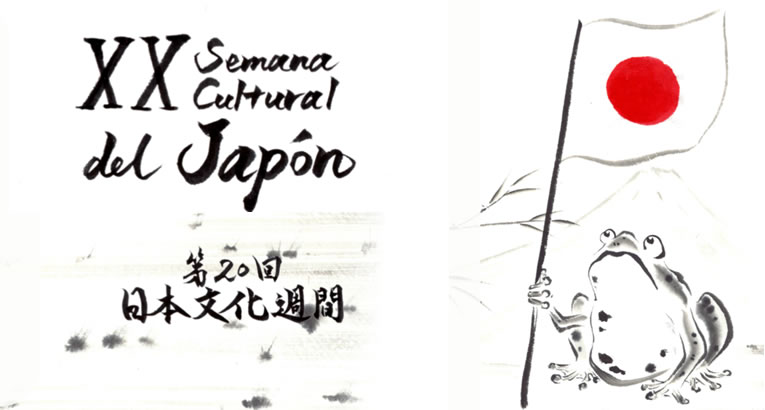 XX Semana
Cultural
del Japón
第20回
日本文化週間